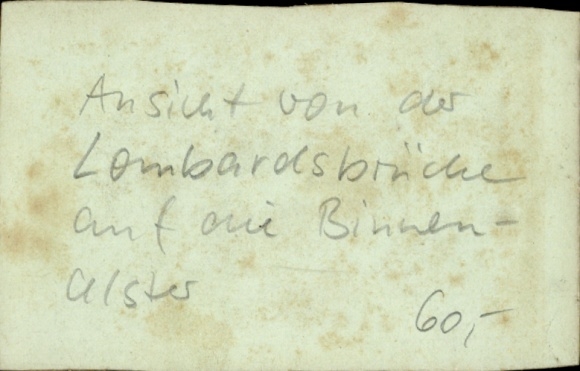 Ansicht von der
Lombardsbrücke
auf die Binnen-
alster
60,-